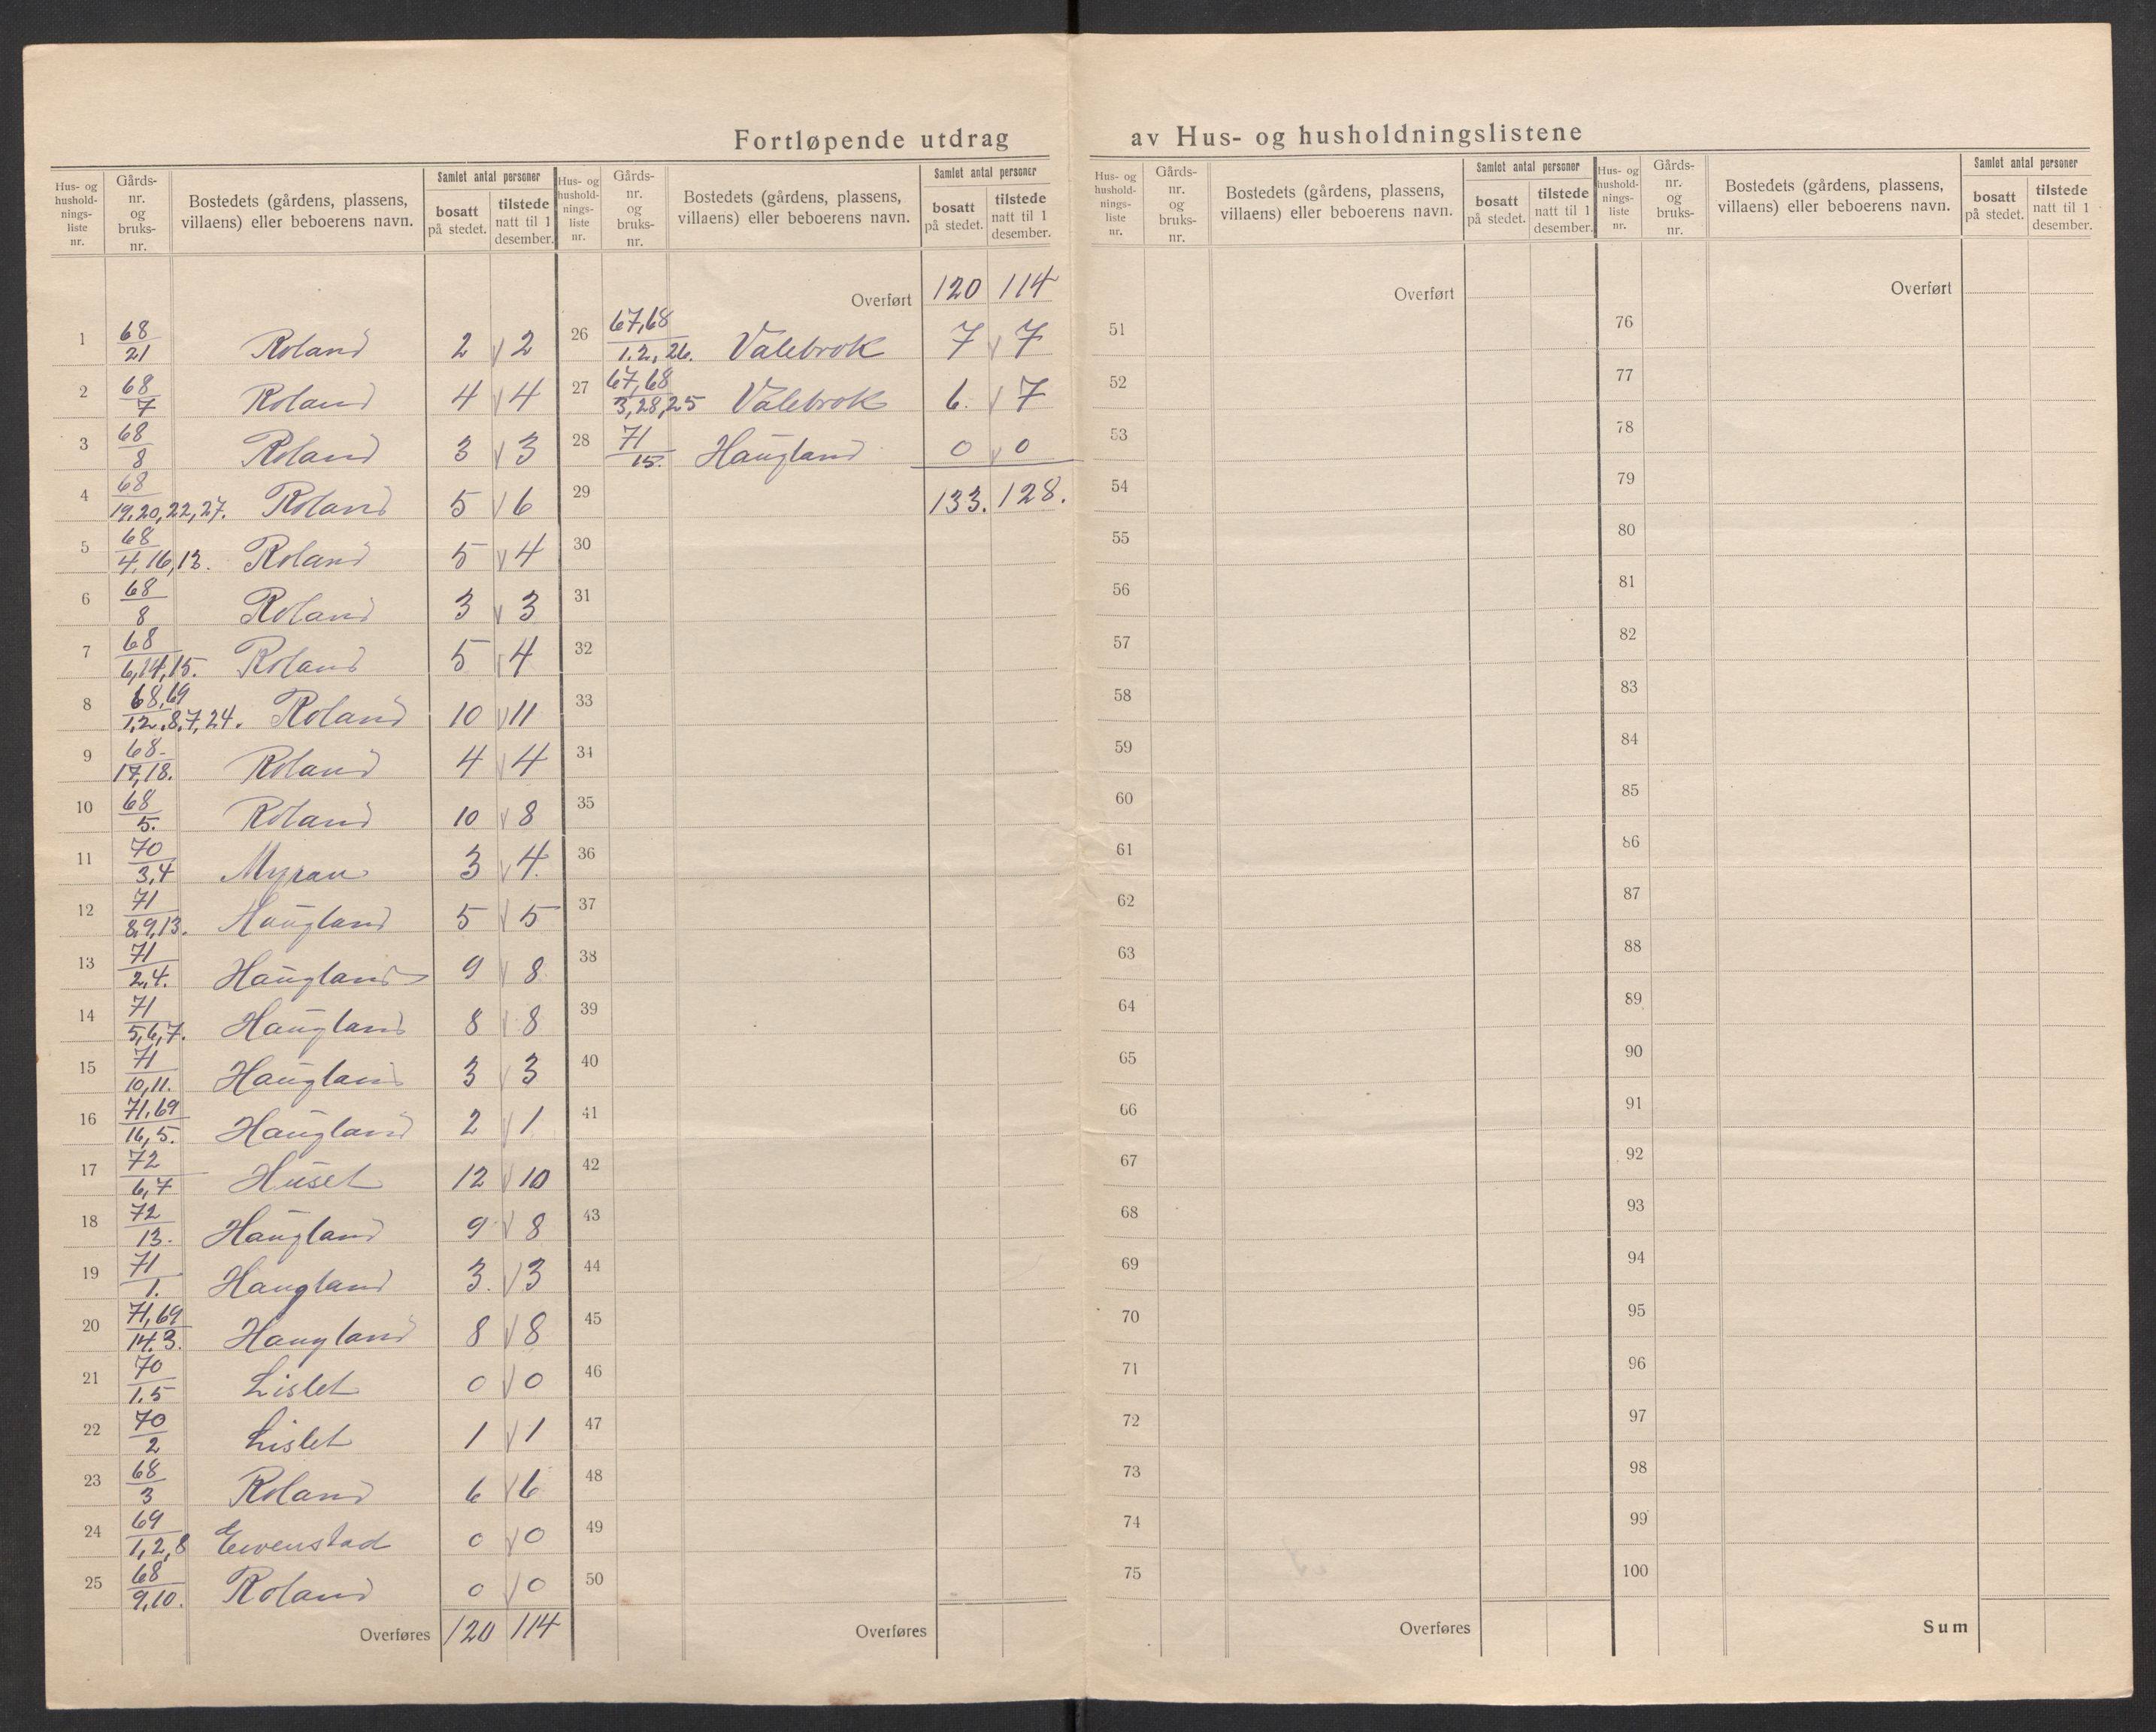 Fortløpende utdrag av Hus- og husholdningslistene
Hus- og husholdningsliste nr. | Gårds-nr. og bruks-nr. | Bostedets (gårdens, plassens, villaens) eller beboerens navn. | Samlet antal personer | bosatt på stedet. | tilstede natt til 1 desember.
1 68/21 Roland 2 v 2
2 68/7 Roland 4 v 4
3 68/8 Roland 3 v 3
4 68/19,20,22,27. Roland 5 v 6
5 68/4,16,13. Roland 5 v 4
6 68/8 Roland 3 v 3
7 68/6,14,15. Roland 5 v 4
8 68,69/1,2,8,7,24. Roland 10 v 11
9 68-/17,18. Roland 4 v 4
10 68/5. Roland 10 v 8
11 70/3,4 Myran 3 v 4.
12 71/8,9,13. Haugland 5 v 5
13 71/2,4. Haugland 9 v 8
14 71/5,6,7. Haugland 8 v 8
15 71/10,11. Haugland 3 v 3
16 71,69/16,5. Haugland 2 v 1
17 72/6,7 Huset 12 v 10
18 72/13. Haugland 9 v 8
19 71/1. Haugland 3. v 3
20 71,69/14.3. Haugland 8 v 8
21 70/1,5 Lislet 0 v 0
22 70/2 Lislet 1 v 1
23 68/3 Roland 6 v 6
24 69/1,2,8 Evenstad 0 v 0
25 68/9,10. Roland 0 v 0
Overføres 120 114
Hus- og husholdningsliste nr. | Gårds-nr. og bruks-nr. | Bostedets (gårdens, plassens, villaens) eller beboerens navn. | Samlet antal personer | bosatt på stedet. | tilstede natt til 1 desember.
Overført 120 114
26 67,68/1.2,26. Valebrok 7 v 7
27 67,68/3,28,25 Valebrok 6. v 7
28 71/15. Haugland 0 v 0
29 133. 128.
30
31
32
33
34
35
36
37
38
39
40
41
42
43
44
45
46
47
48
49
50
Overføres
Hus- og husholdningsliste nr. | Gårds-nr. og bruks-nr. | Bostedets (gårdens, plassens, villaens) eller beboerens navn. | Samlet antal personer | bosatt på stedet. | tilstede natt til 1 desember.
Overført
51
52
53
54
55
56
57
58
59
60
61
62
63
64
65
66
67
68
69
70
71
72
73
74
75
Overføres
Hus- og husholdningsliste nr. | Gårds-nr. og bruks-nr. | Bostedets (gårdens, plassens, villaens) eller beboerens navn. | Samlet antal personer | bosatt på stedet. | tilstede natt til 1 desember.
Overført
76
77
78
79
80
81
82
83
84
85
86
87
88
89
90
91
92
93
94
95
96
97
98
99
100
Sum